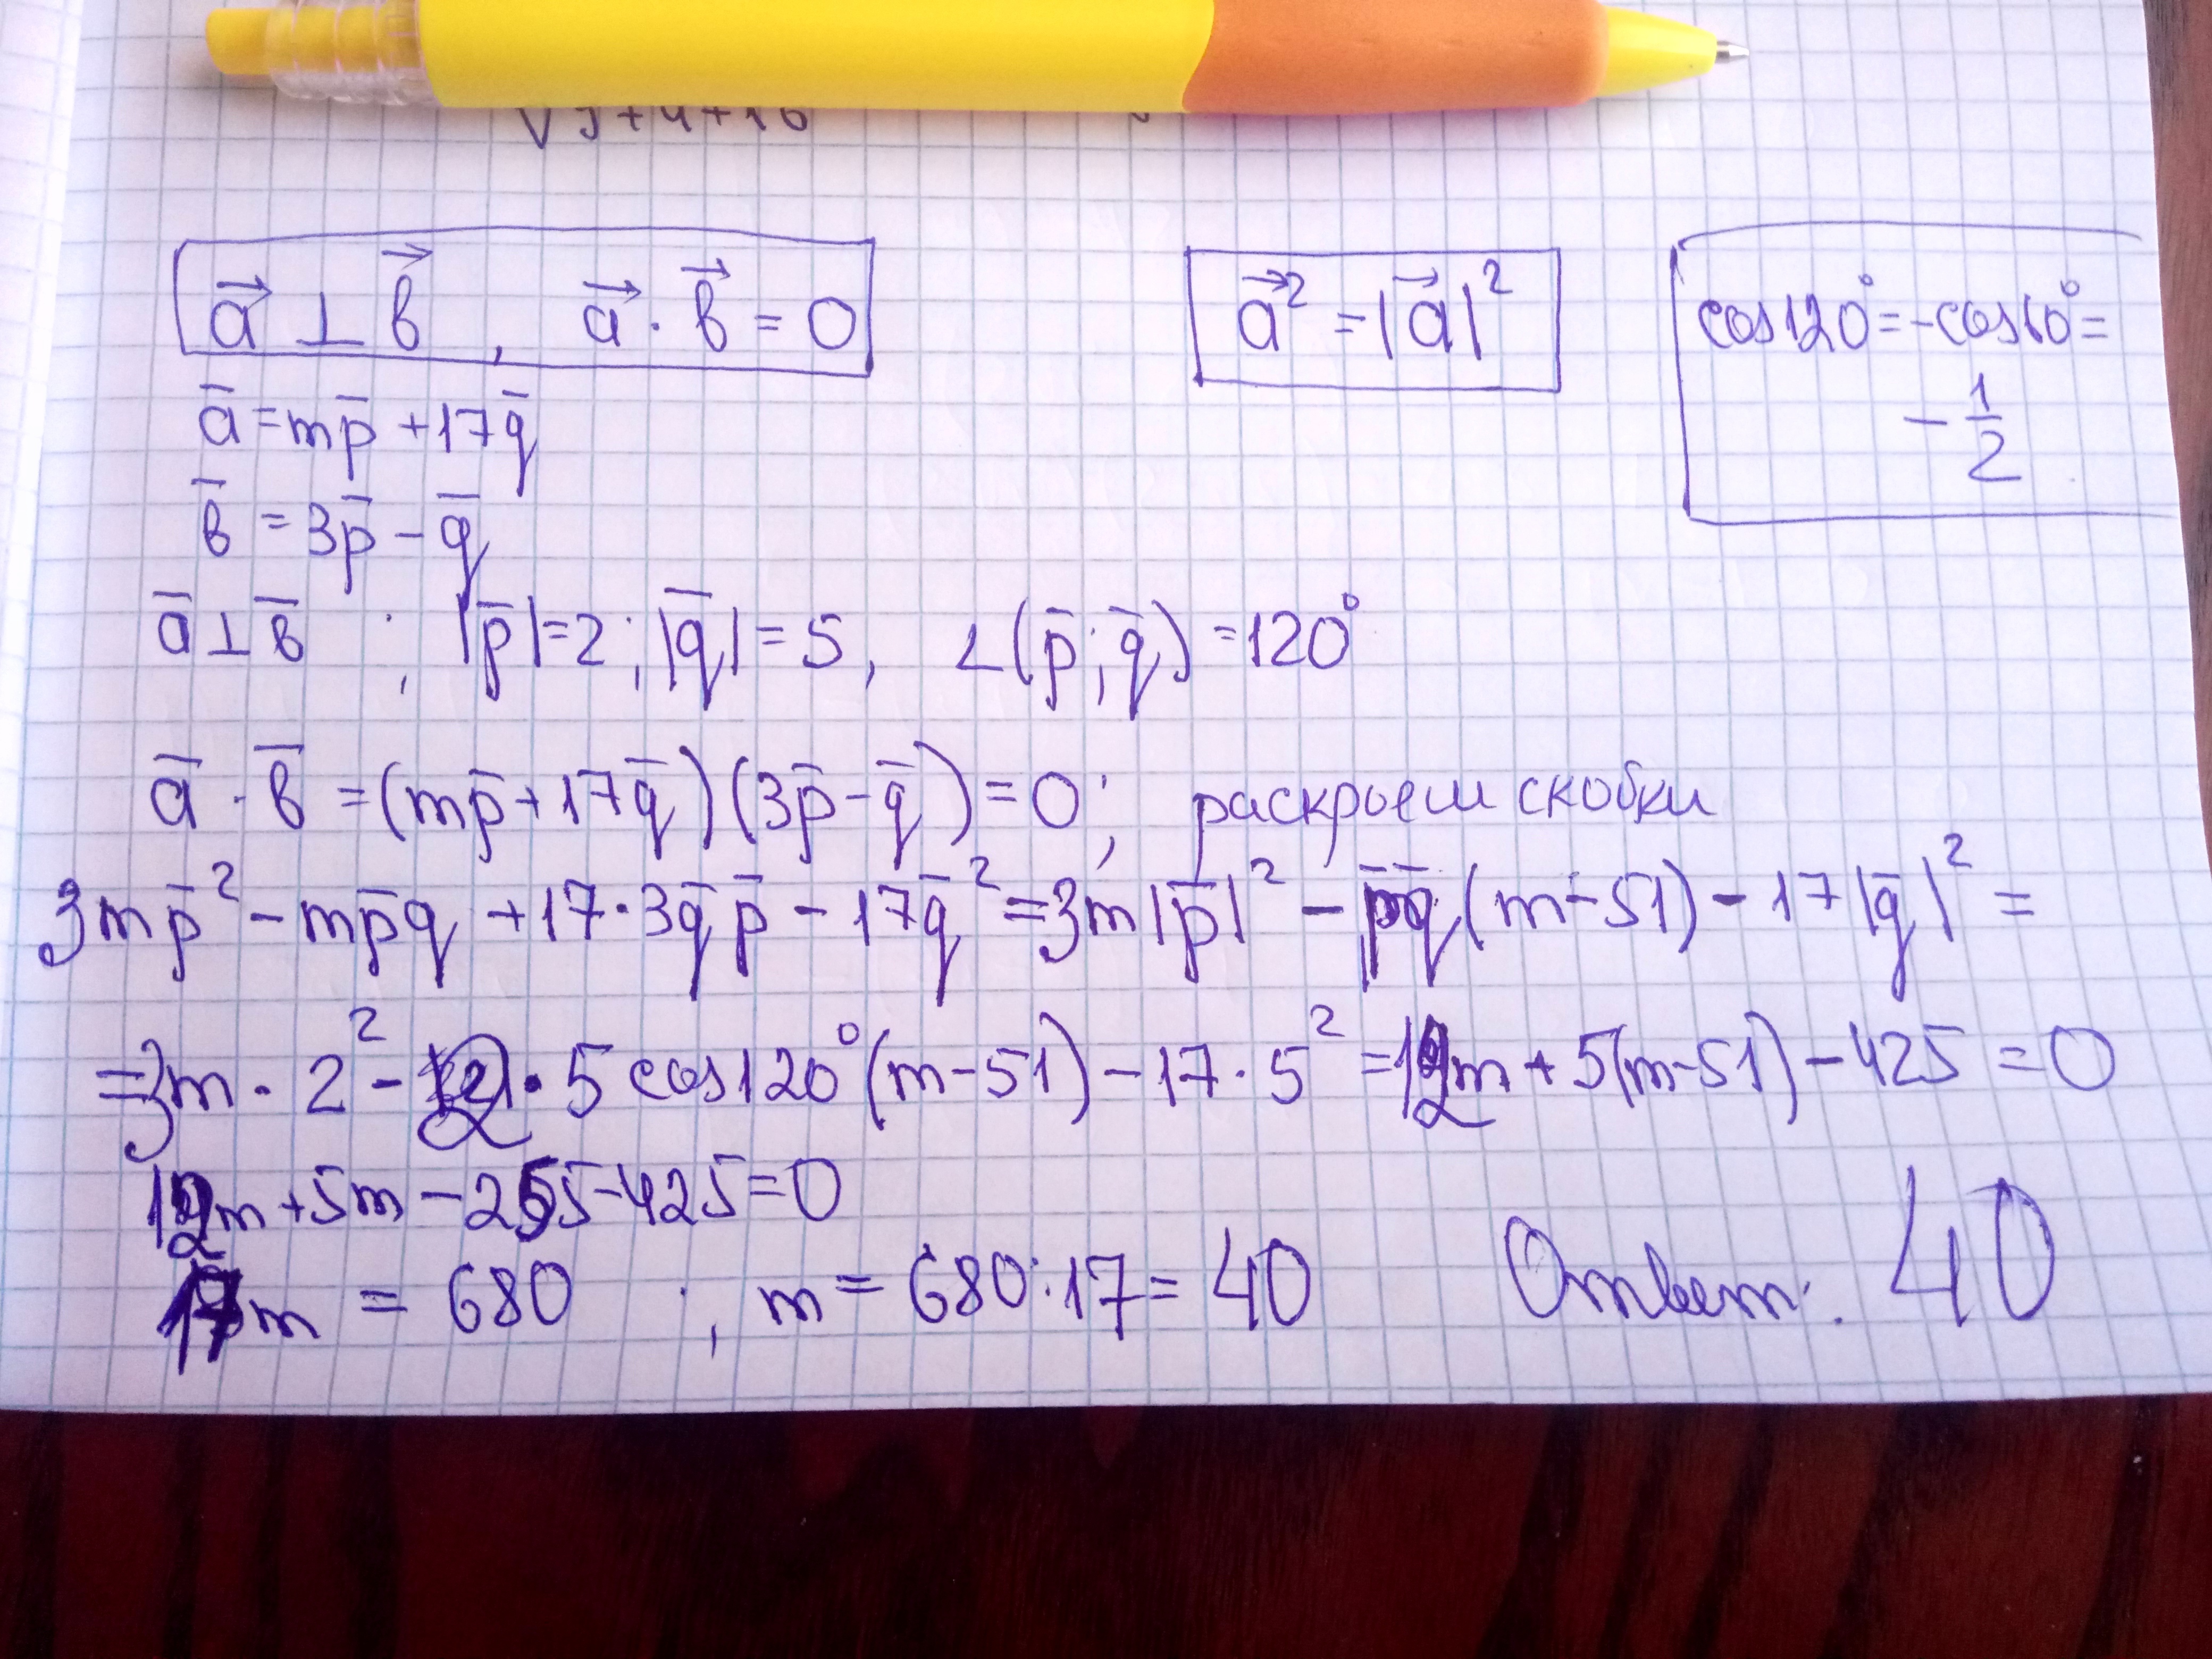 a⃗ ⊥ b⃗ , a⃗ · b⃗ = 0
a⃗² = |a⃗|²
cos120° = -cos60° =
- 1/2
a̅ = mp̅ + 17q̅
b̅ = 3p̅ - q̅
a̅ ⊥ b̅ ; |p̅| = 2; |q̅| = 5, ∠(p̅; q̅) = 120°
a̅ · b̅ = (mp̅ + 17q̅)(3p̅ - q̅) = 0; раскроем скобки
3mp̅² - mp̅q + 17·3q̅p̅ - 17q̅² = 3m|p̅|² - p̅q̅(m - 51) - 17|q̅|² =
= 3m · 2² - 2 · 5 cos120°(m - 51) - 17 · 5² = 12m + 5(m - 51) - 425 = 0
12m + 5m - 255 - 425 = 0
17m = 680 ; m = 680 : 17 = 40 Ответ: 40